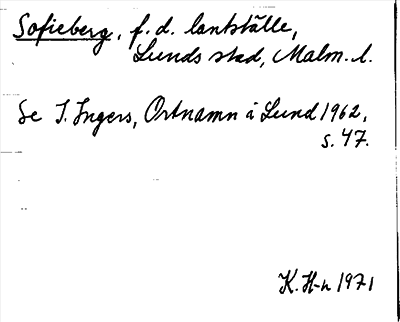 Sofieberg, f.d. lantställe,
Lunds stad, Malm. l.
Se I. Ingers, Ortnamn i Lund 1962,
s. 47.
K. H-n 1971